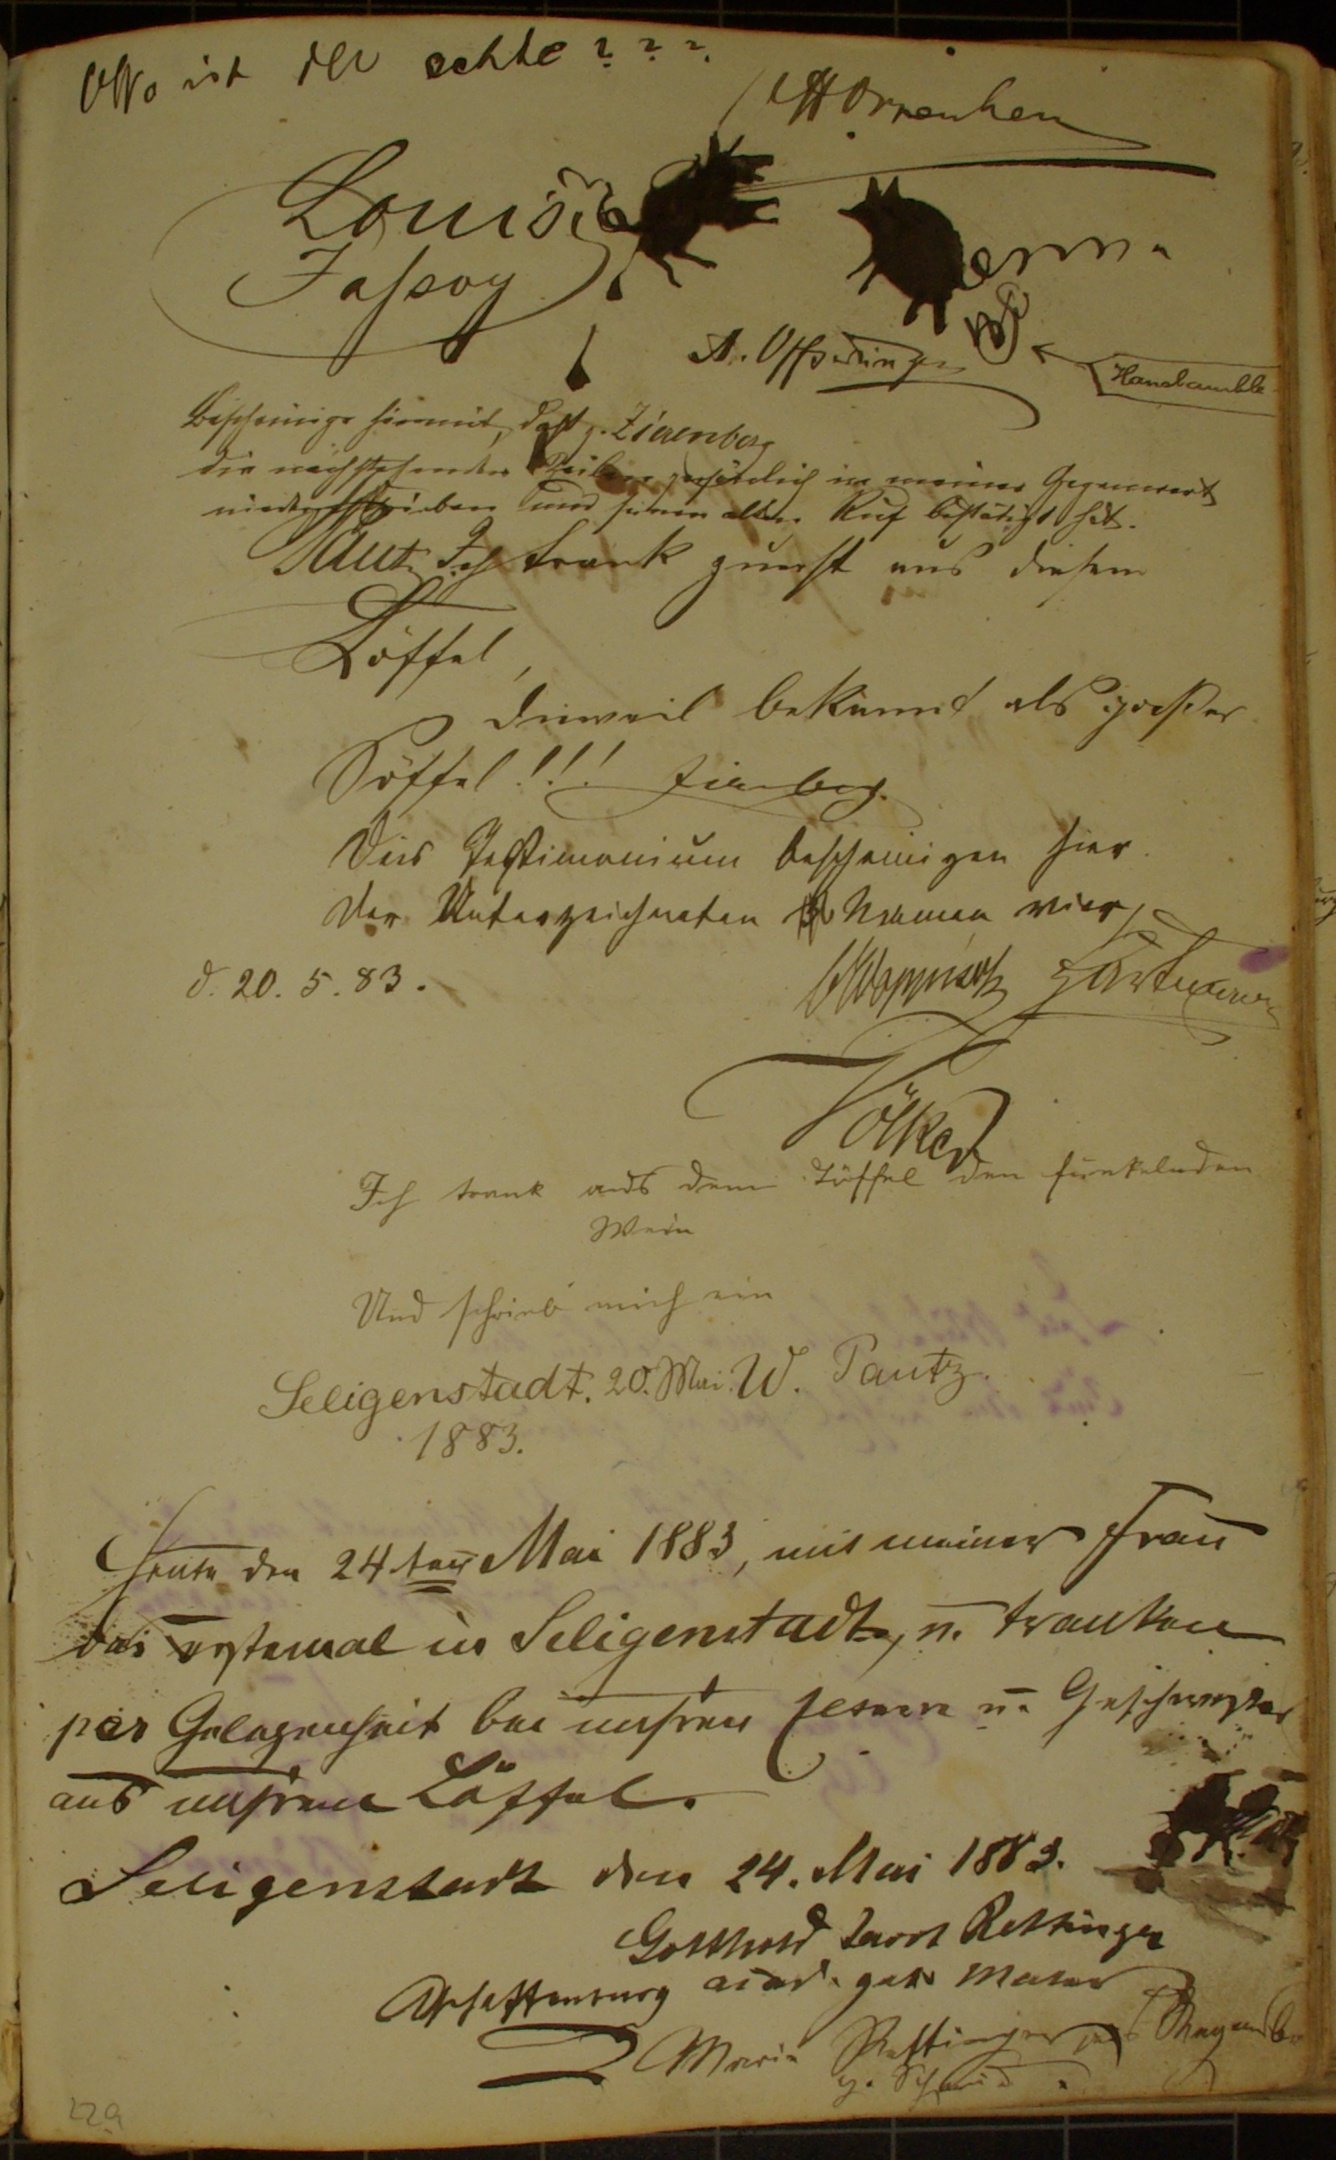 Otto ist der echte ? ? ?
Louis
Jassoy
A. Offenbinger
Bescheinige hiermit, daß H. Zierenberg
die nachstehenden Zeilen persönlich in meiner Gegenwart
niedergeschrieben und seinen alten Ruf bestätigt hat.
Ich trank zuerst aus diesem
Löffel,
dieweil bekannt als großer
Söffel!!! Zierenberg.
Dies Testimonium bescheinigen hier
Der Unterzeichneten Namen vier,
d. 20. 5. 83.
Hartmann
Völker
Ich trank aus dem Löffel den funkelnden
Wein
Und schrieb mich ein
Seligenstadt, 20. Mai W. Pautz.
1883.
Heute den 24ten Mai 1883, mit meiner Frau
das erstemal in Seligenstadt, u. tranken
per Gelegenheit bei unsren u. Geschwister
aus unsrem Löffel.
Seligenstadt den 24. Mai 1883.
Gotthold Rettinger
Aschaffenburg
Maria Rettinger
g. Schmid.
229